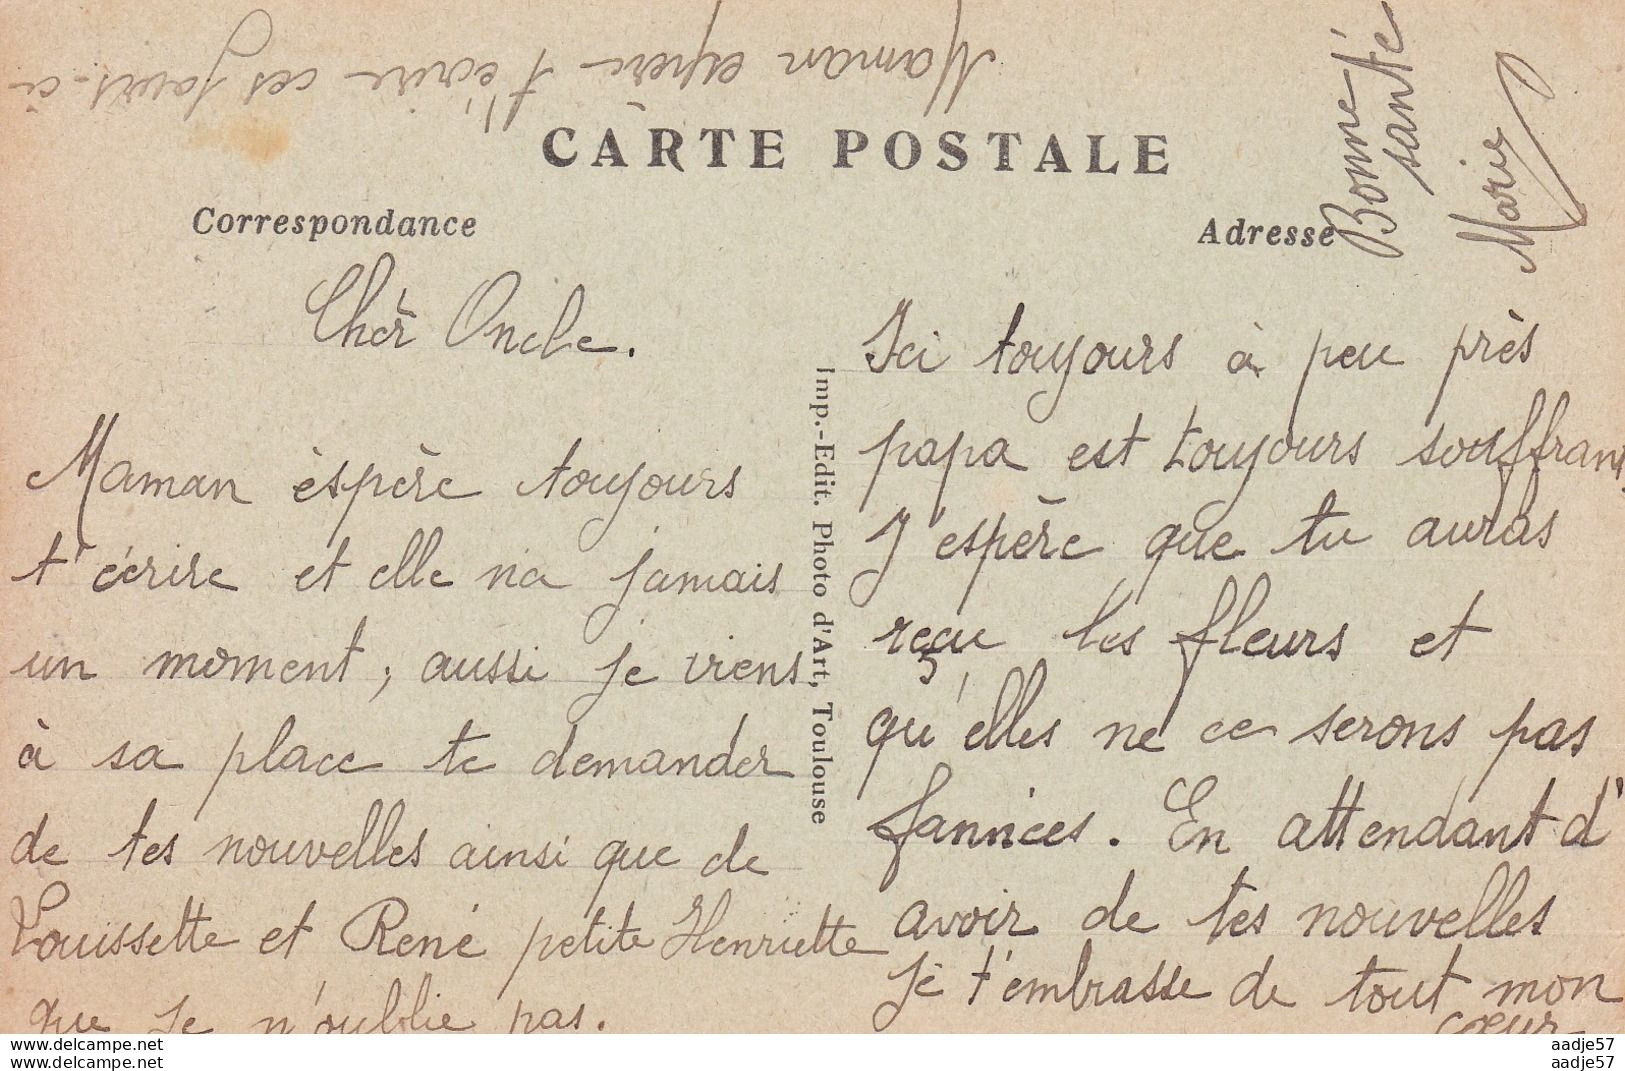 Maman espère t'écrire ces jours-ci
CARTE POSTALE
Correspondance
Adresse
Bonne
santé
Marie
Cher Oncle.
Maman éspère toujours
t'écrire et elle n'a jamais
un moment, aussi je viens
à sa place te demander
de tes nouvelles ainsi que de
Louissette et René petite Henriette
que je n'oublie pas.
Imp.-Edit. Photo d'Art, Toulouse
Ici toujours à peu près
papa est toujours souffrant.
J'espère que tu auras
reçu les fleurs et
qu'elles ne ce serons pas
fannées. En attendant d'
avoir de tes nouvelles
je t'embrasse de tout mon
cœur
www.delcampe.net
aadje57
www.delcampe.net
aadje57